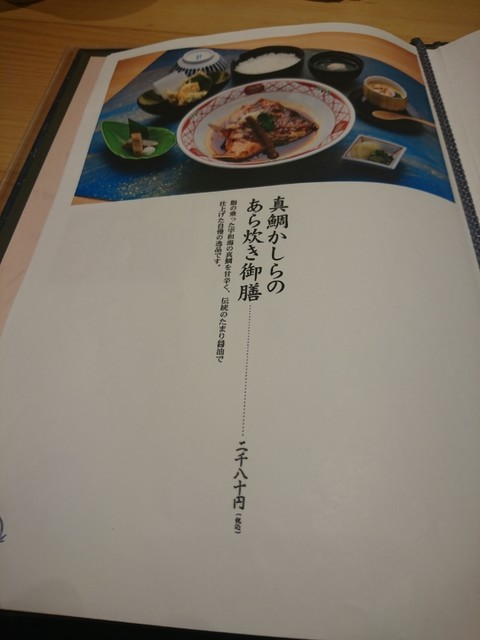 真鯛かしらの
あら炊き御膳
二千八十円(税込)
脂の乗った宇和海の真鯛を甘辛く、伝統のたまり醤油で
仕上げた自慢の逸品です。